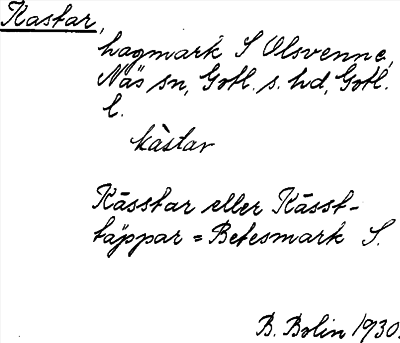 Kastar,
hagmark S Olsvenne,
Näs sn, Gotl. s. hd, Gotl.
l.
kàstar
Kässtar eller Kässt-
täppar = Betesmark S.
B. Bolin 1930.